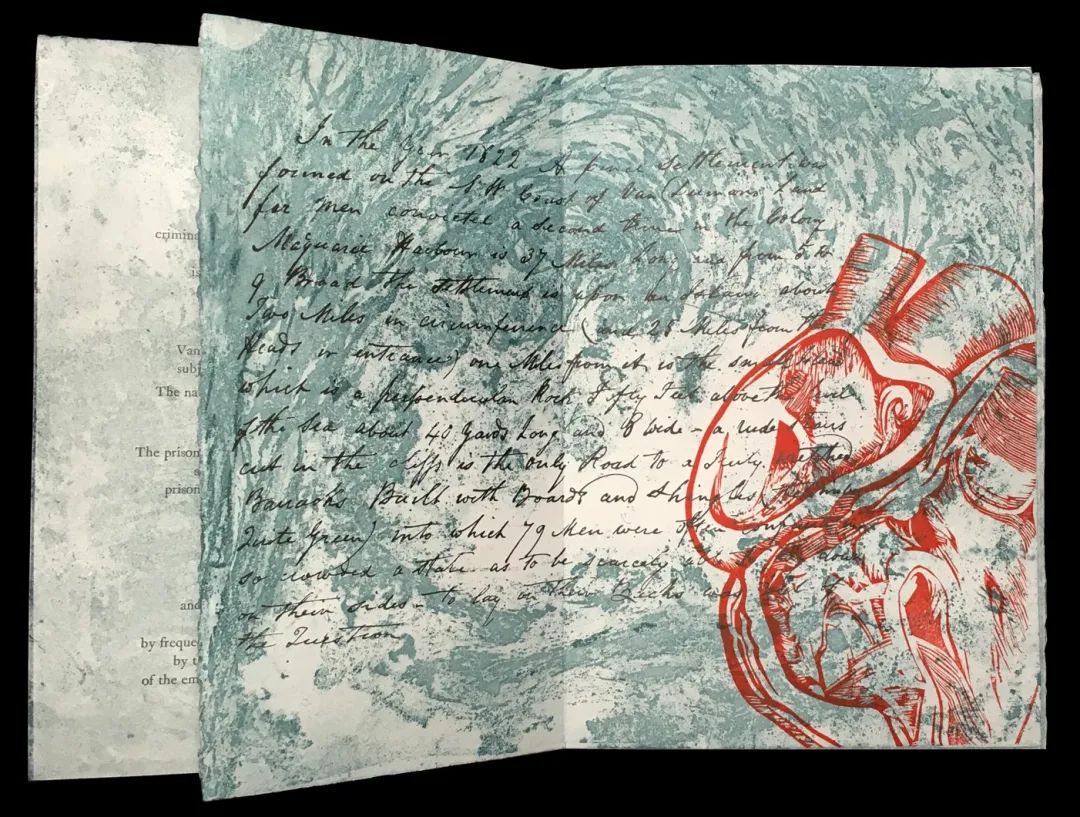 crimina
is
Van
subj
The na
The prison
a
prison
and
by freque
by t
of the em
In the Year 1822 A penal Settlement was
formed on the S. W. Coast of Van Diemans Land
for Men convicted a second time in the Colony
Maquarie Harbour is 37 Miles Long and from
9 Broad The settlement is upon an Island about
Two Miles in circumference (and 25 Miles from the
Heads or entrance) one Mile from it is the small
which is a perpendicular Rock Fifty Feet above the
of the Sea about 40 Yards Long and 8 wide - a rude Stairs
cut in the cliffs is the only Road to a Truly
Barracks Built with Boards and Shingles
Quite Green) into which 79 Men were
so crowded a State as to be scarcely
on their sides - to lay on their Backs was
the Question